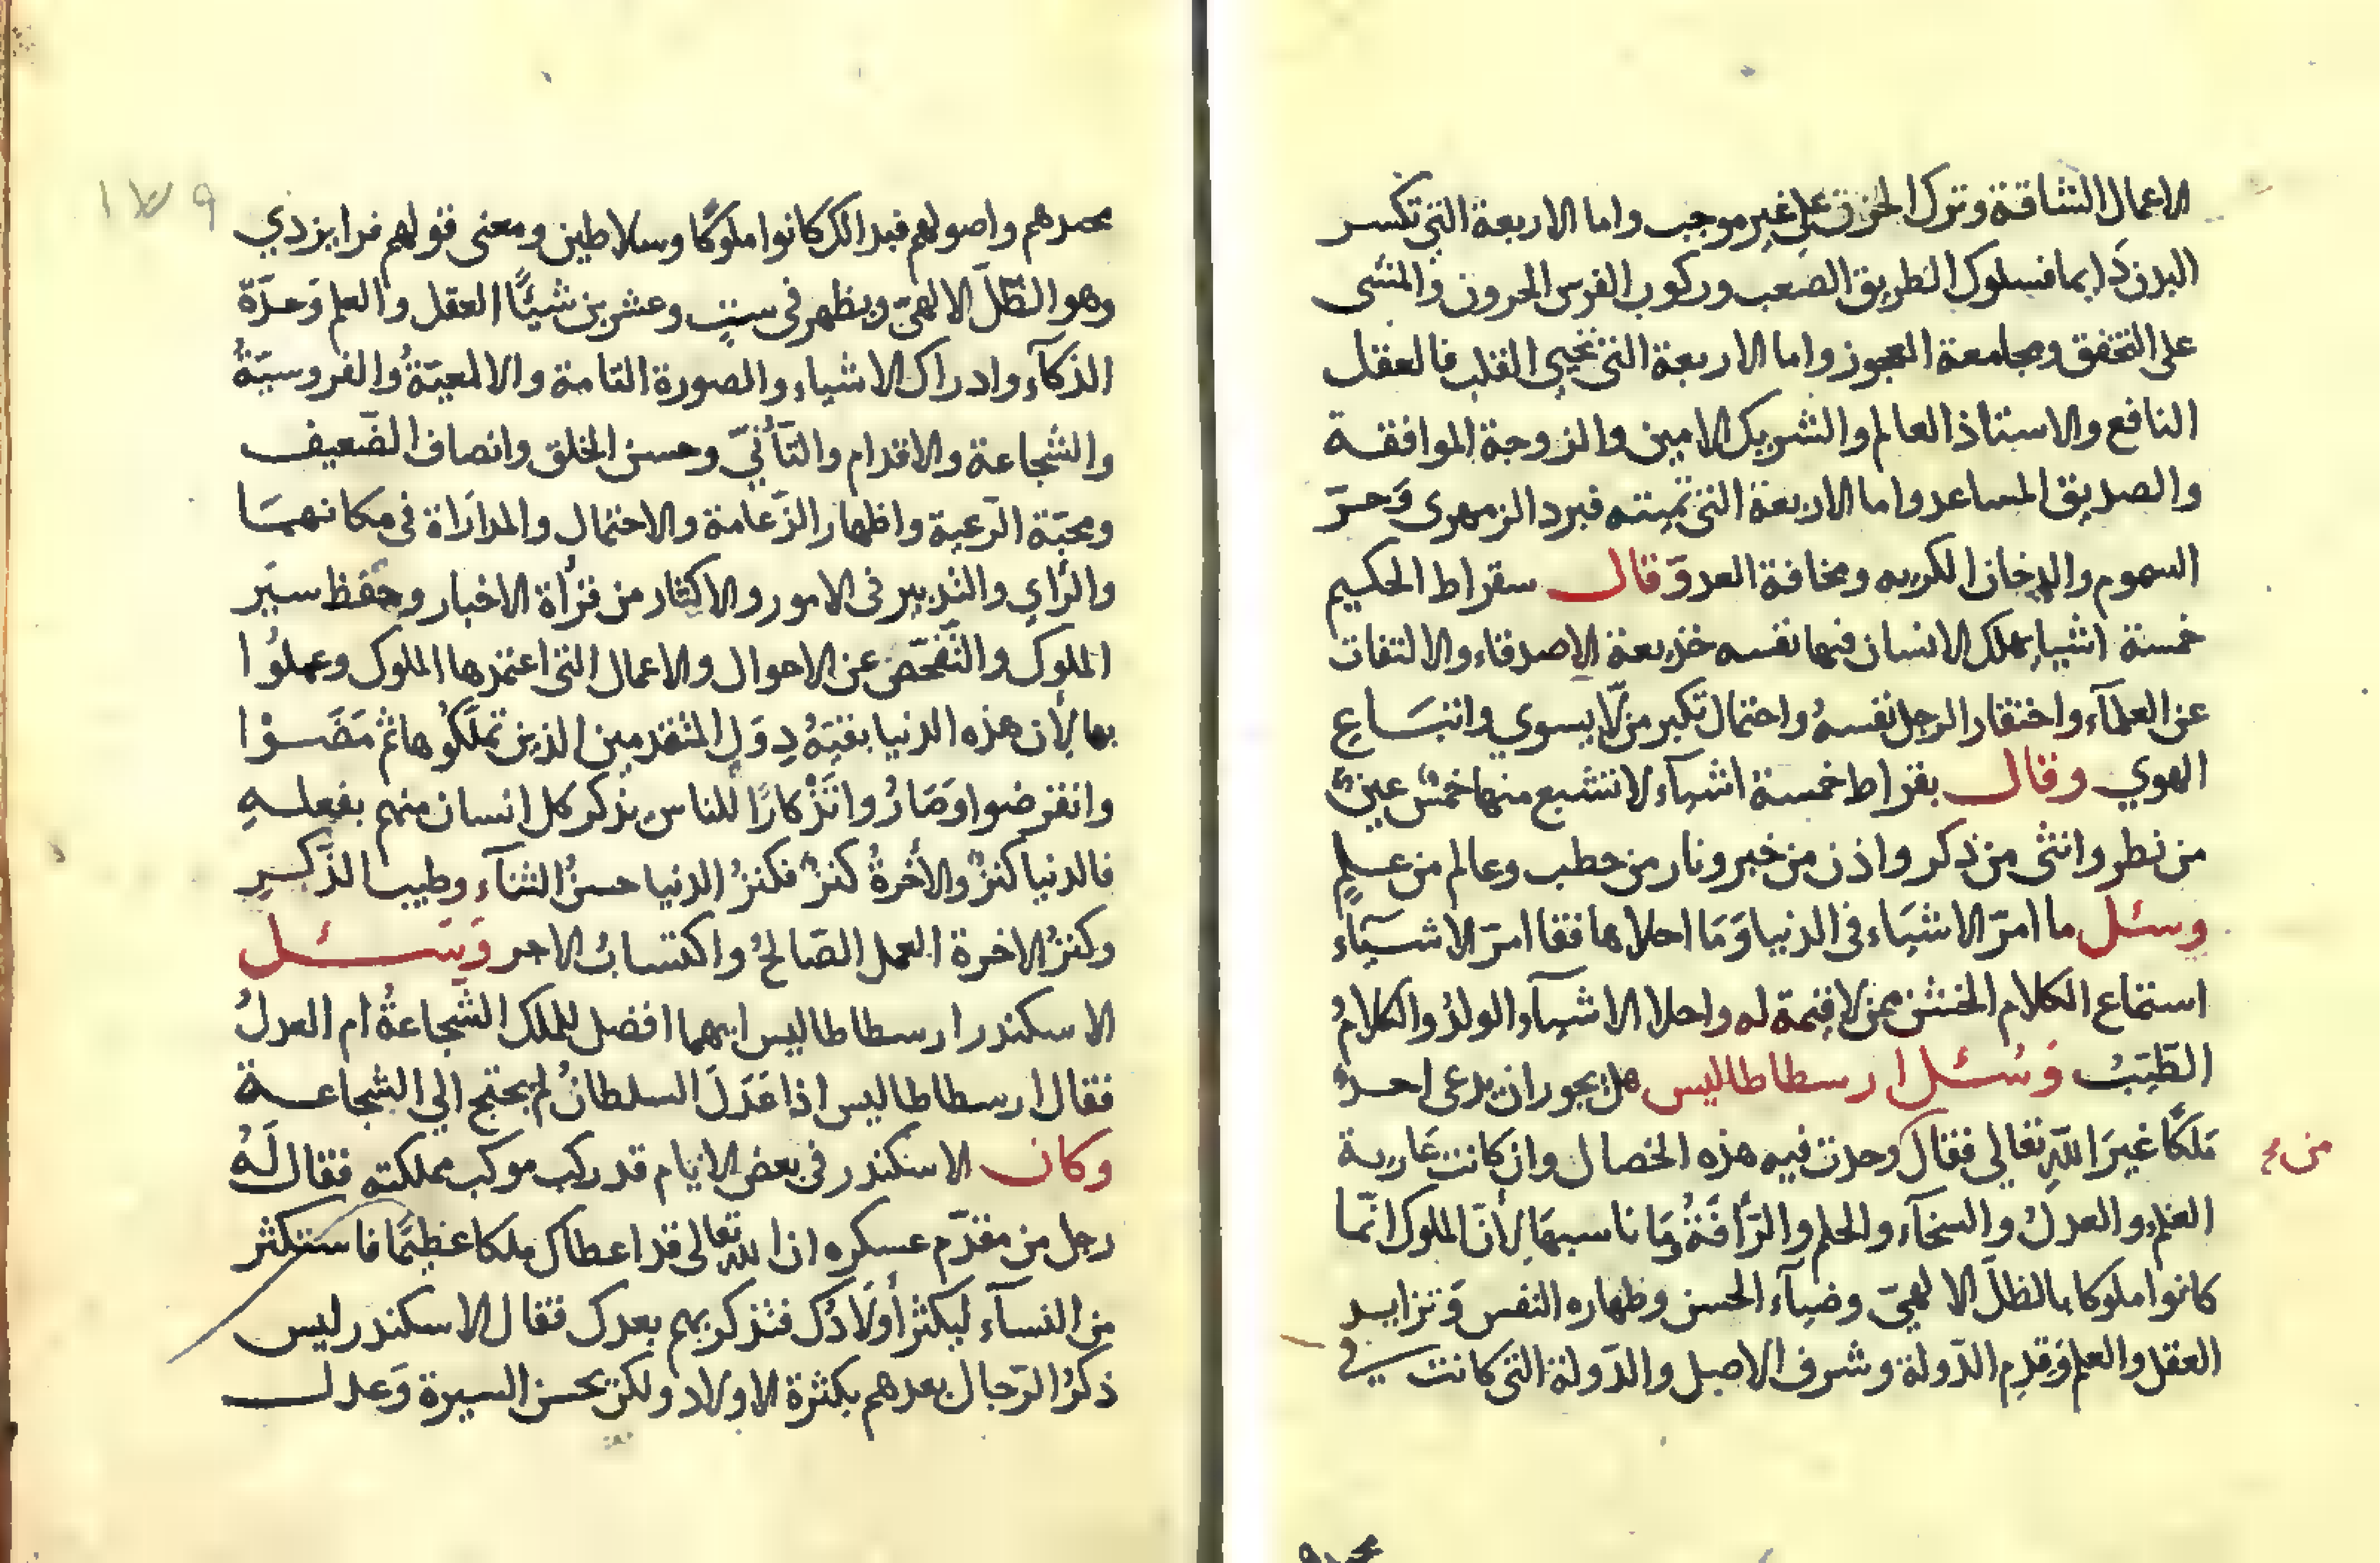 الاعمال الشاقة وترك الحزن علي غير موجب واما الاربعة التي تكسر
البدن دَايما فسلوك الطريق الصعب وركوب الفرس الحرون والمشى
على التخفق ومجامعة العجوز واما الاربعة التي تحيي القلب فالعقل
النافع والاستاذ العالم والشريك الامين والزوجة الموافقة
والصديق المساعد واما الاربعة التي تميته فبرد الزمهرى وَحرّ
السموم والدخان الكريه ومخافة العدوّ وقال سقراط الحكيم
خمسة اشياء يهلك الانسان فيها نفسه خديعة الاصدقاء والالتفات
عن العلمآء واحتقار الرجل نفسهُ واحتمال تكبر من لّا يسوي واتبَاع
الهوي وقال بقراط خمسة اشيآء لا تشبع منها خمسٌ عينٌ
من نظر وانثى من ذكر واذن من خبر ونار من حطب وعالم من علمٍ
وسئل ما امرّ الاشيَاء في الدنيا وَمَا احلاها فقا امرّ الاشيآء
استماع الكلام الخشن ممن لا قيمة له واحلا الاشيآء الولدُ والكلامُ
الطَيّبُ وَسُئل ارسطاطاليس هل يجوز ان يدعى احدٌ
مَلكًا غيَر اللهِ تعالى فقال وجدت فيه هذه الخصال وان كانت عَارية
من
العلم والعدلُ والسخآء والحلم والرّأفَةُ وَمَا ناسبهَا لِأنّ الملوك انّما
كانوا ملوكا بالظلّ الالهيّ وضيآء الحسن وطهاره النفس وَتزايد
العقل والعلم وَقِدمِ الدّولة وشرف الاصل والدّولة التى كانت في
محمدهم واصولهم فبذالك كانوا ملوكًا وسلاطين ومعنى قولهم فرايزدي
١٧٩
وهو الظّلّ الالهيّ ويظهر فى ستٍ وعشرين شيئًا العقل والعلم وَحدّة
الذكآء وادراك الاشياء والصورة التامة والالمعيّةُ والفروسيّةُ
والشّجاعة والاقدام والتّأنّيّ وحسن الخلق وانصاف الضّعيف
ومحبّة الرّعية واظهار الزّعامة والاحتمال والمدارَاة فى مكانهمَا
والرّأي والتّدبير فى الامور والاكثار من قرأة الاخبار وحفظ سيَر
الملوك والتّفحّص عن الاحوال والاعمال التى اعتمدها الملوك وعملُوا
بها لأن هذه الدنيا بقيّهُ دِوَلِ المتقدمين الذين تملّكُوها ثم مَضَوْا
وانقرضوا وَصَارُوا تَذْكارًا للناس يذكر كل انسان منهم بفعلهِ
فالدنيا كنزٌ والأخرةُ كنزٌ فكنزُ الدنيا حسنُ الثنآء وطيب الذّكرِ
وكنزُ الاخرة العمل الصّالحُ واكتسابُ الاجر وَسَئل
الاسكندر ارسطاطاليس ايهما افضل للملك الشّجاعةُ ام العدلُ
فقال ارسطاطاليس اذا عَدَلَ السلطانُ لم يحتج الي الشجاعة
وكان الاسكندر في بعض الايام قد ركب موكب مملكته فقال لَهُ
رجل من مقدّم عسكره ان الله تعالى قد اعطاك ملكا عظيمًا فاستكثر
من النسآء ليكثر أولَادُك فتذكر بهم بعدك فقال الاسكندر ليس
ذكرُ الرّجال بعدهم بكثرة الاولاد ولكن بحسن السيرة وَعدل